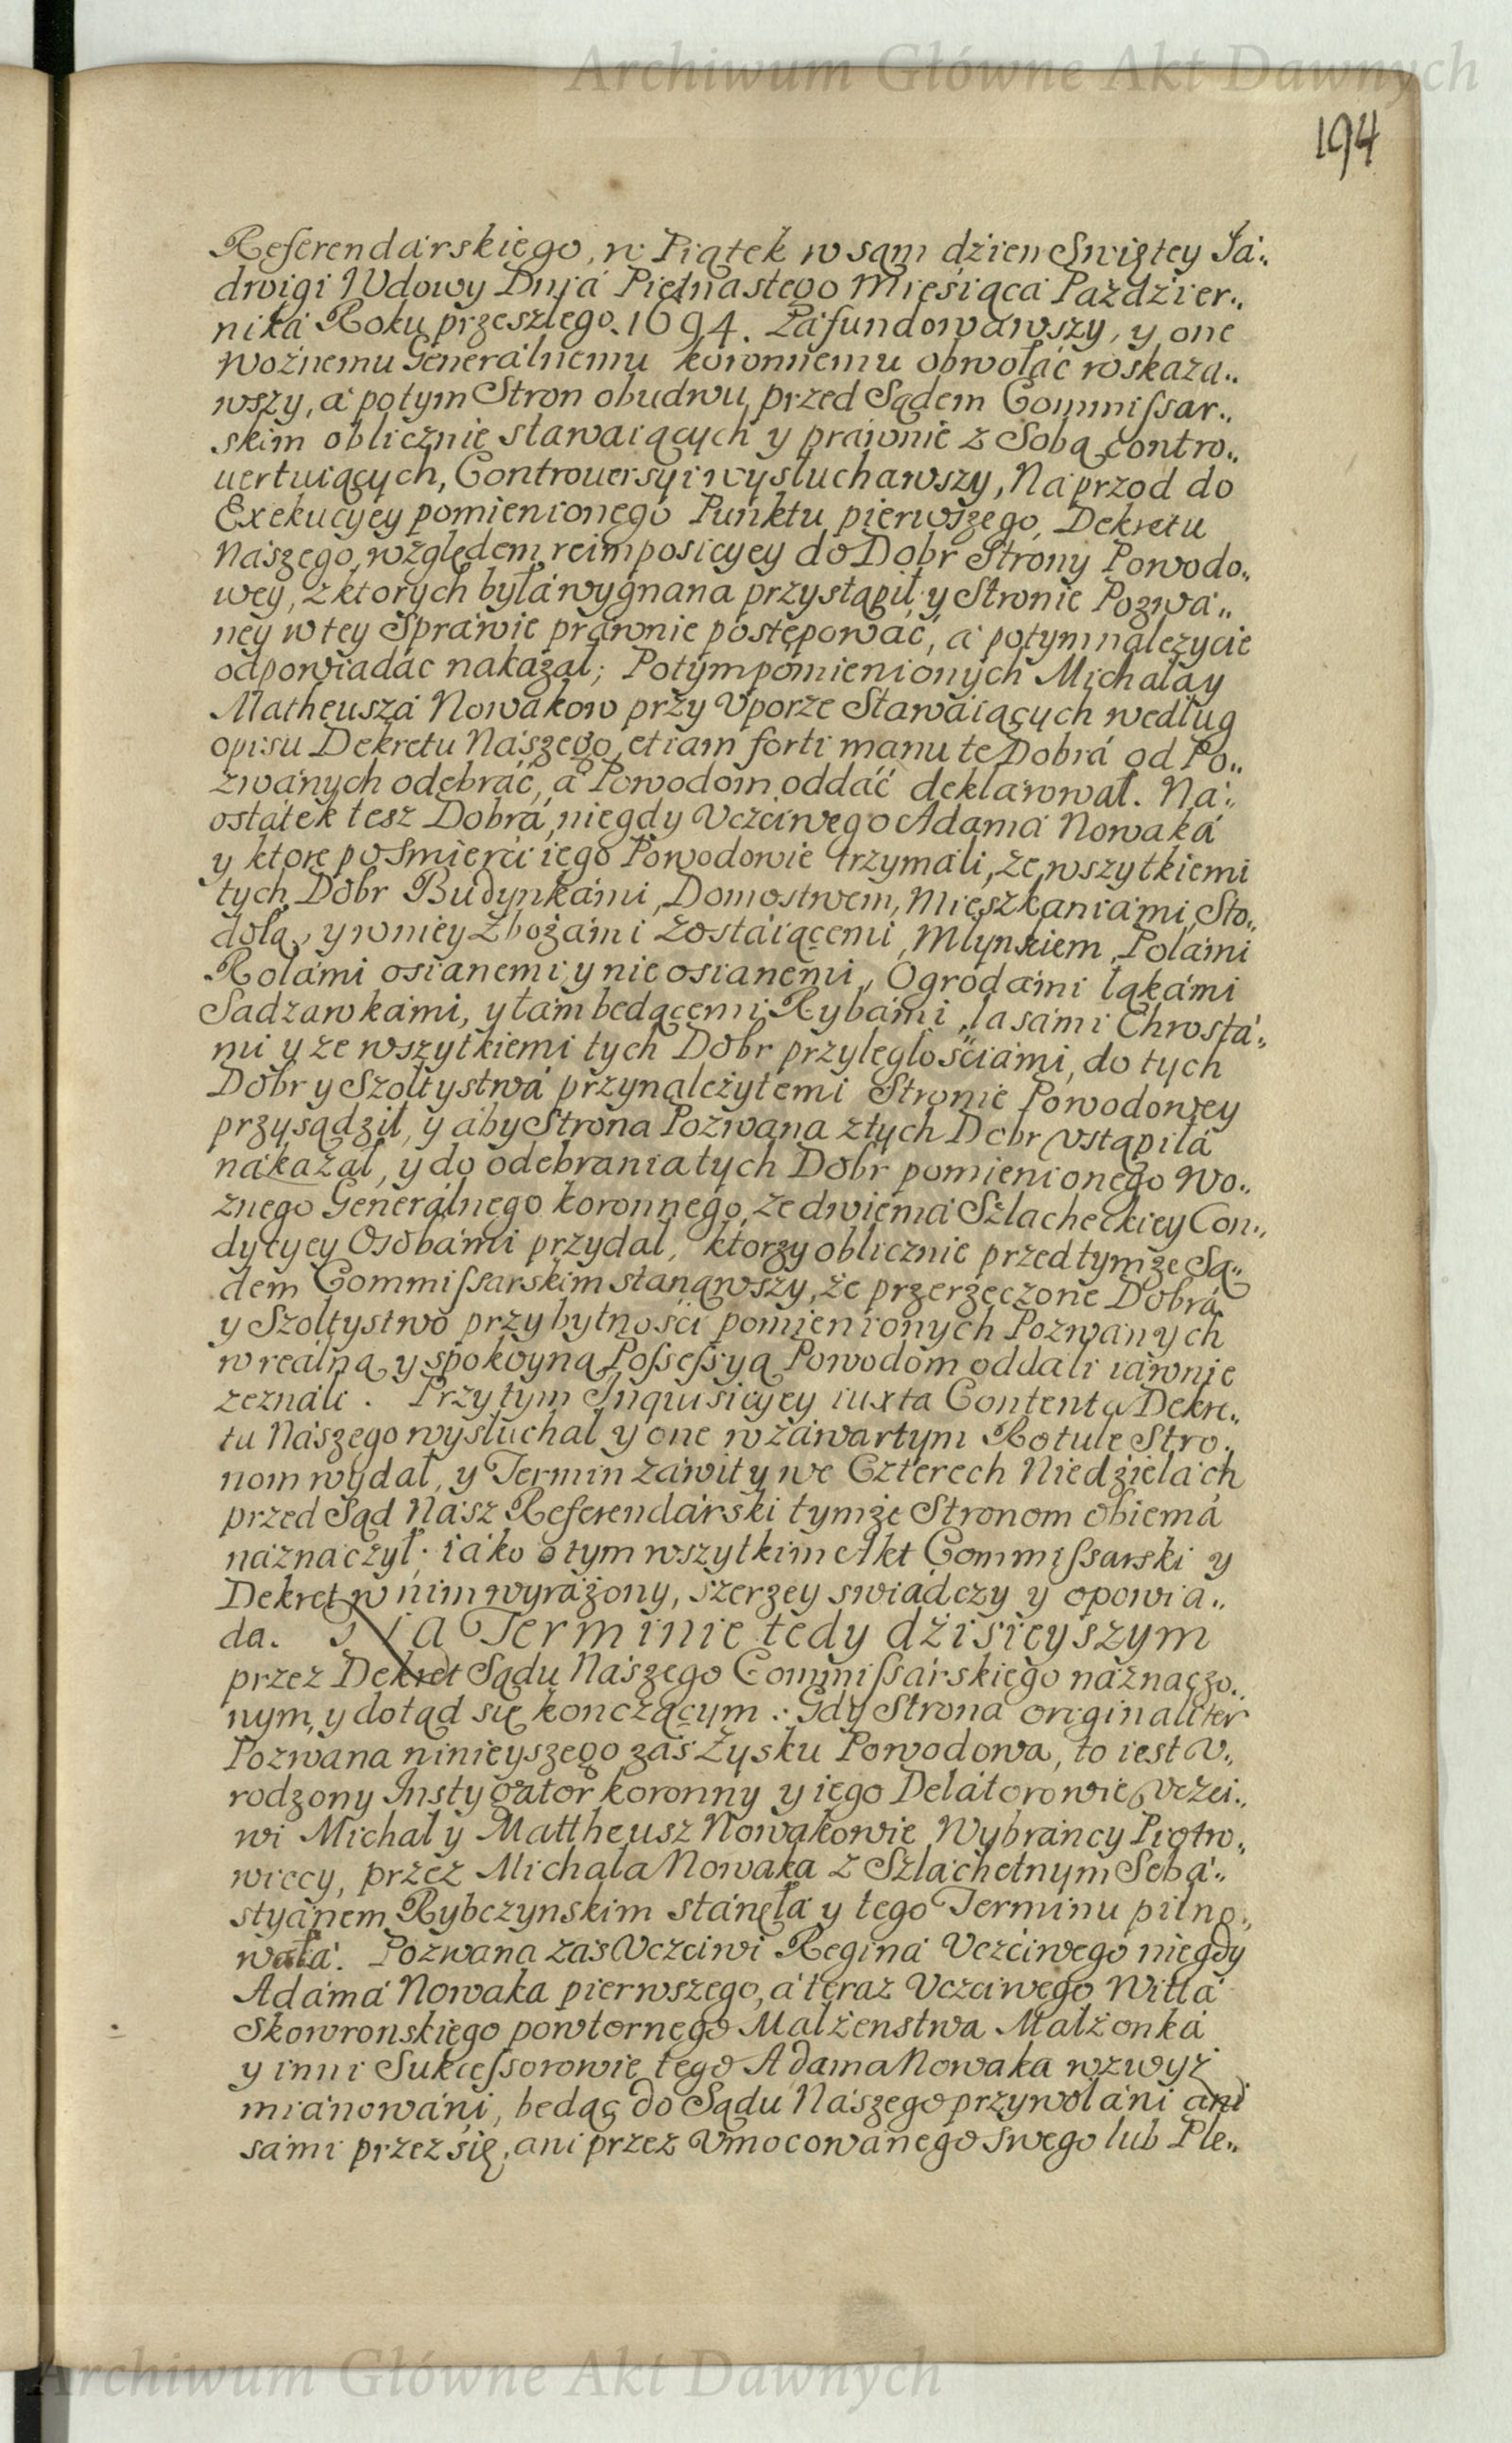 Archiwum Główne Akt Dawnych
194
Referendárskiego, w Piątek w sąm dźien Swiętey Já„
drwigi Wdowy Dnia Piętnastego Miesiąca Paźdźier„
niká Roku przeszłego 1694. Záfundowawszy, y one
Woźnemu Generálnemu koronnemu obwołáć roskaza„
wszy, á potym Stron obudwu przed Sądem Commissar„
skim oblicznie stawaiących y práwnie z Sobą contro„
uertuiących, Controuersyi wysłuchawszy, Naprzod do
Exekucyey pomienionego Punktu pierwszego, Dekretu
Nászego, względem reimposicyey do Dobr Strony Powodo„
wey, z ktorych byłá wygnana przystąpił y Stronie Pozwá„
ney w tey Spráwie práwnie postępowáć, á potym należycie
odpowiadáć nakazał; Potym pomienionych Michałá y
Matheuszá Nowákow przy Vporze Stawáiących według
opisu Dekretu Nászego, etiam forti manu te Dobrá od Po„
zwánych odebráć, á Powodom oddáć deklárował. Ná„
ostátek tesz Dobrá, niegdy Vczciwego Adamá Nowaká
y ktore po Smierci iego Powodowie trzymáli, ze wszytkiemi
tych Dobr Budynkámi, Domostwem, Mieszkaniámi, Sto„
dołą, y w niey Zbożámi zostáiącemi, Młynkiem, Polámi
Rolámi osianemi y nie osianemi, Ogrodámi łąkámi
Sadzawkámi, y tám będącemi Rybámi, lasámi Chrostá„
mi y ze wszytkiemi tych Dobr przyległościámi, do tych
Dobr y Szołtystwá przynależytemi Stronie Powodowey
przysądził, y áby Strona Pozwana z tych Dobr vstąpiłá
nákazał, y do odebrania tych Dobr pomienionego Wo„
znego Generálnego koronnego, ze dwiemá Szlacheckiey Con„
dytyey Osobámi przydał, ktorzy oblicznie przed tymże Są„
dem Commissarskim stanąwszy, że przerzeczone Dobrá
y Szołtystwo przy bytności pomienionych Pozwánych
w reálną y spokoyną Possessyą Powodom oddáli iáwnie
zeználi. Przytym Inquisicyey iuxta Contenta Dekre„
tu Nászego wysłuchał y one w záwartym Rotule Stro„
nom wydał, y Termin záwity we Czterech Niedźielách
przed Sąd Nász Referendárski tymże Stronom obiemá
náznaczył; iáko o tym wszytkim Akt Commissarski y
Dekret w nim wyráżony, szerzey swiádczy y opowia„
da. Na Terminie tedy dźisieyszym
przez Dekret Sądu Nászego Commissárskiego náznaczo„
nym, y dotąd się kończącym: Gdy Strona originaliter
Pozwana ninieyszego záś Zysku Powodowa, to iest V„
rodzony Instygátor koronny y iego Delátorowie, Vczci„
wi Michał y Mattheusz Nowakowie Wybráncy Piotro„
wiccy, przez Michała Nowaka z Szláchetnym Sebá„
styánem Rybczynskim stánęłá y tego Terminu pilno„
wałá. Pozwana záś Vczciwi Reginá Vczciwego niegdy
Adámá Nowaka pierwszego, á teraz Vczciwego Wittá
Skowronskiego powtornego Małżenstwa Małżonká
y inni Sukcessorowie tego Adama Nowaka wzwyż
miánowáni, będąc do Sądu Nászego przywołáni ani
sámi przez się, ani przez Vmocowánego swego lub Ple„
Archiwum Główne Akt Dawnych